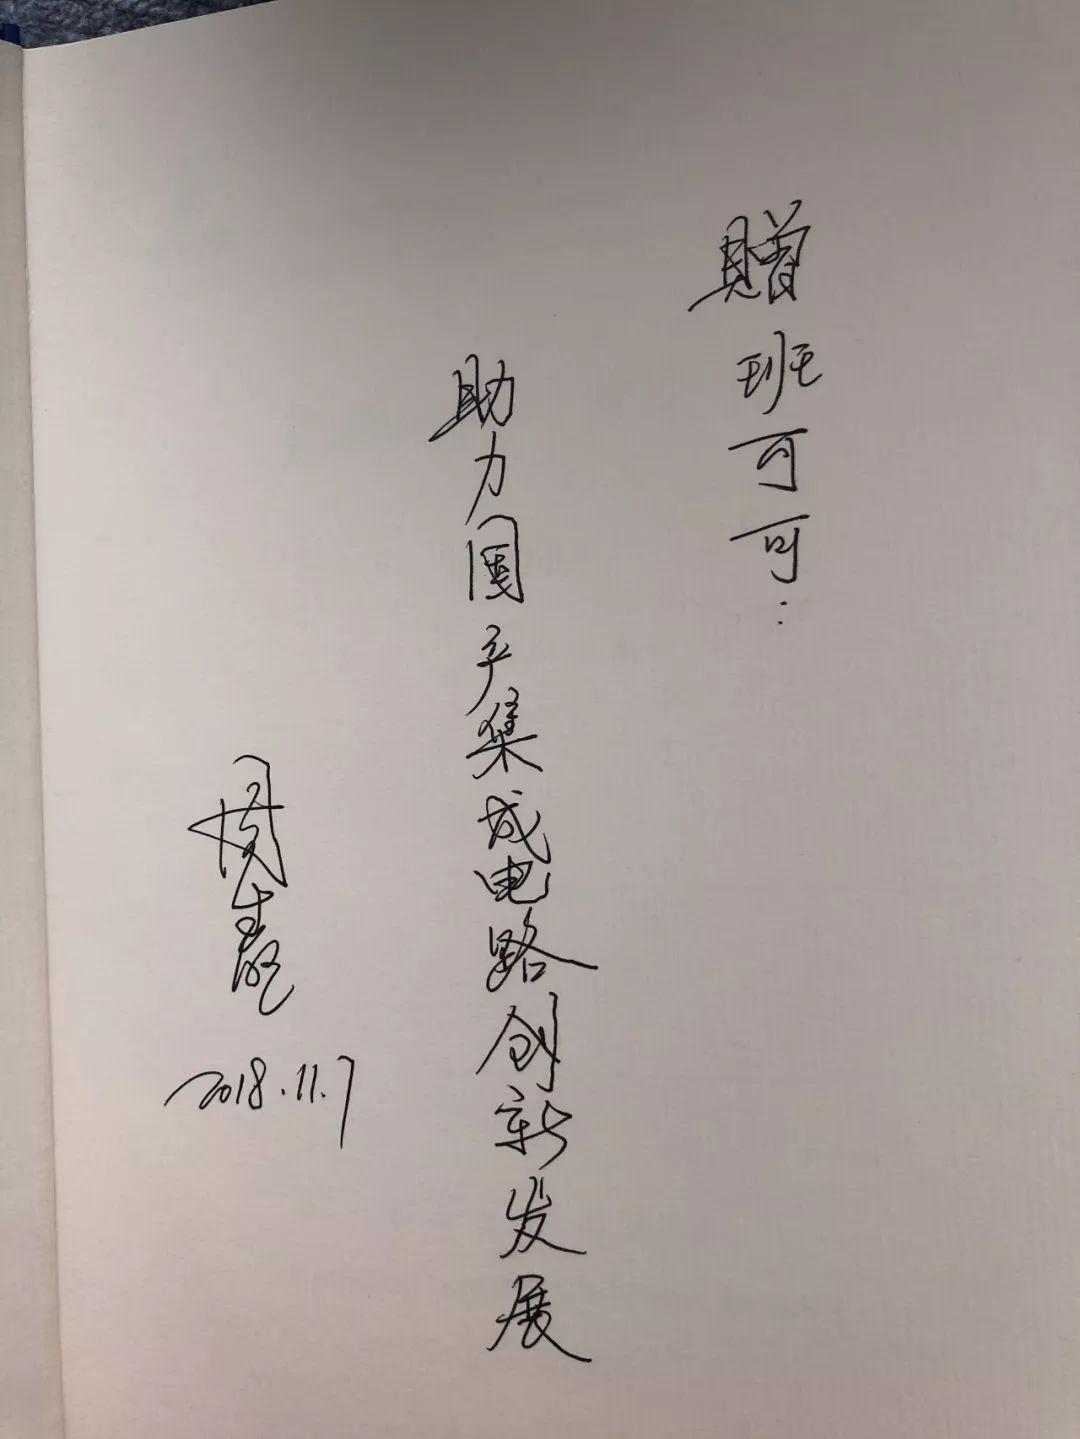 赠班可可：
助力国产集成电路创新发展
周生明
2018.11.7